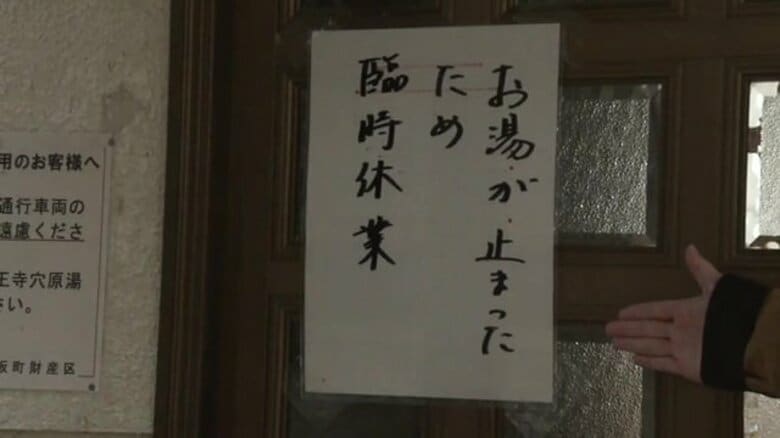 お湯が止まった
ため
臨時休業
用のお客様へ
通行車両の
遠慮くださ
王寺穴原湯
さい。
坂町財産区